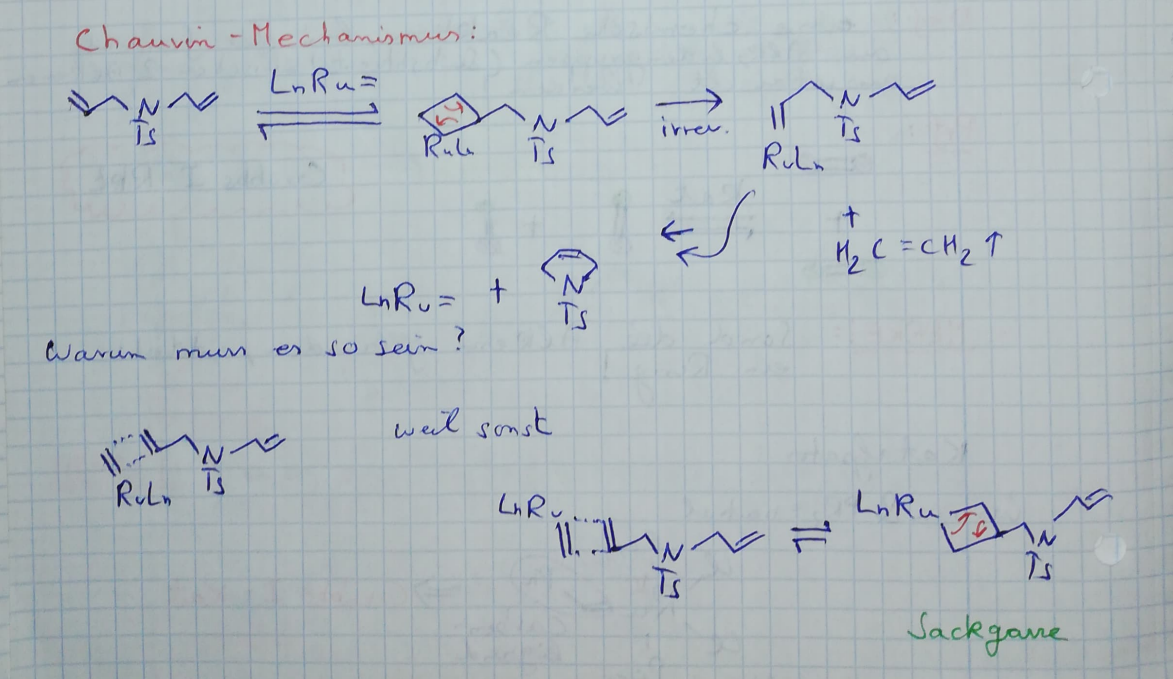 Chauvin-Mechanismus:
LnRu=
N Ts
RuLn N Ts
irrev.
N Ts
RuLn
+
H2C=CH2↑
LnRu= + N Ts
Warum muss es so sein?
weil sonst
RuLn N Ts
LnRu N Ts
LnRu N Ts
Sackgasse